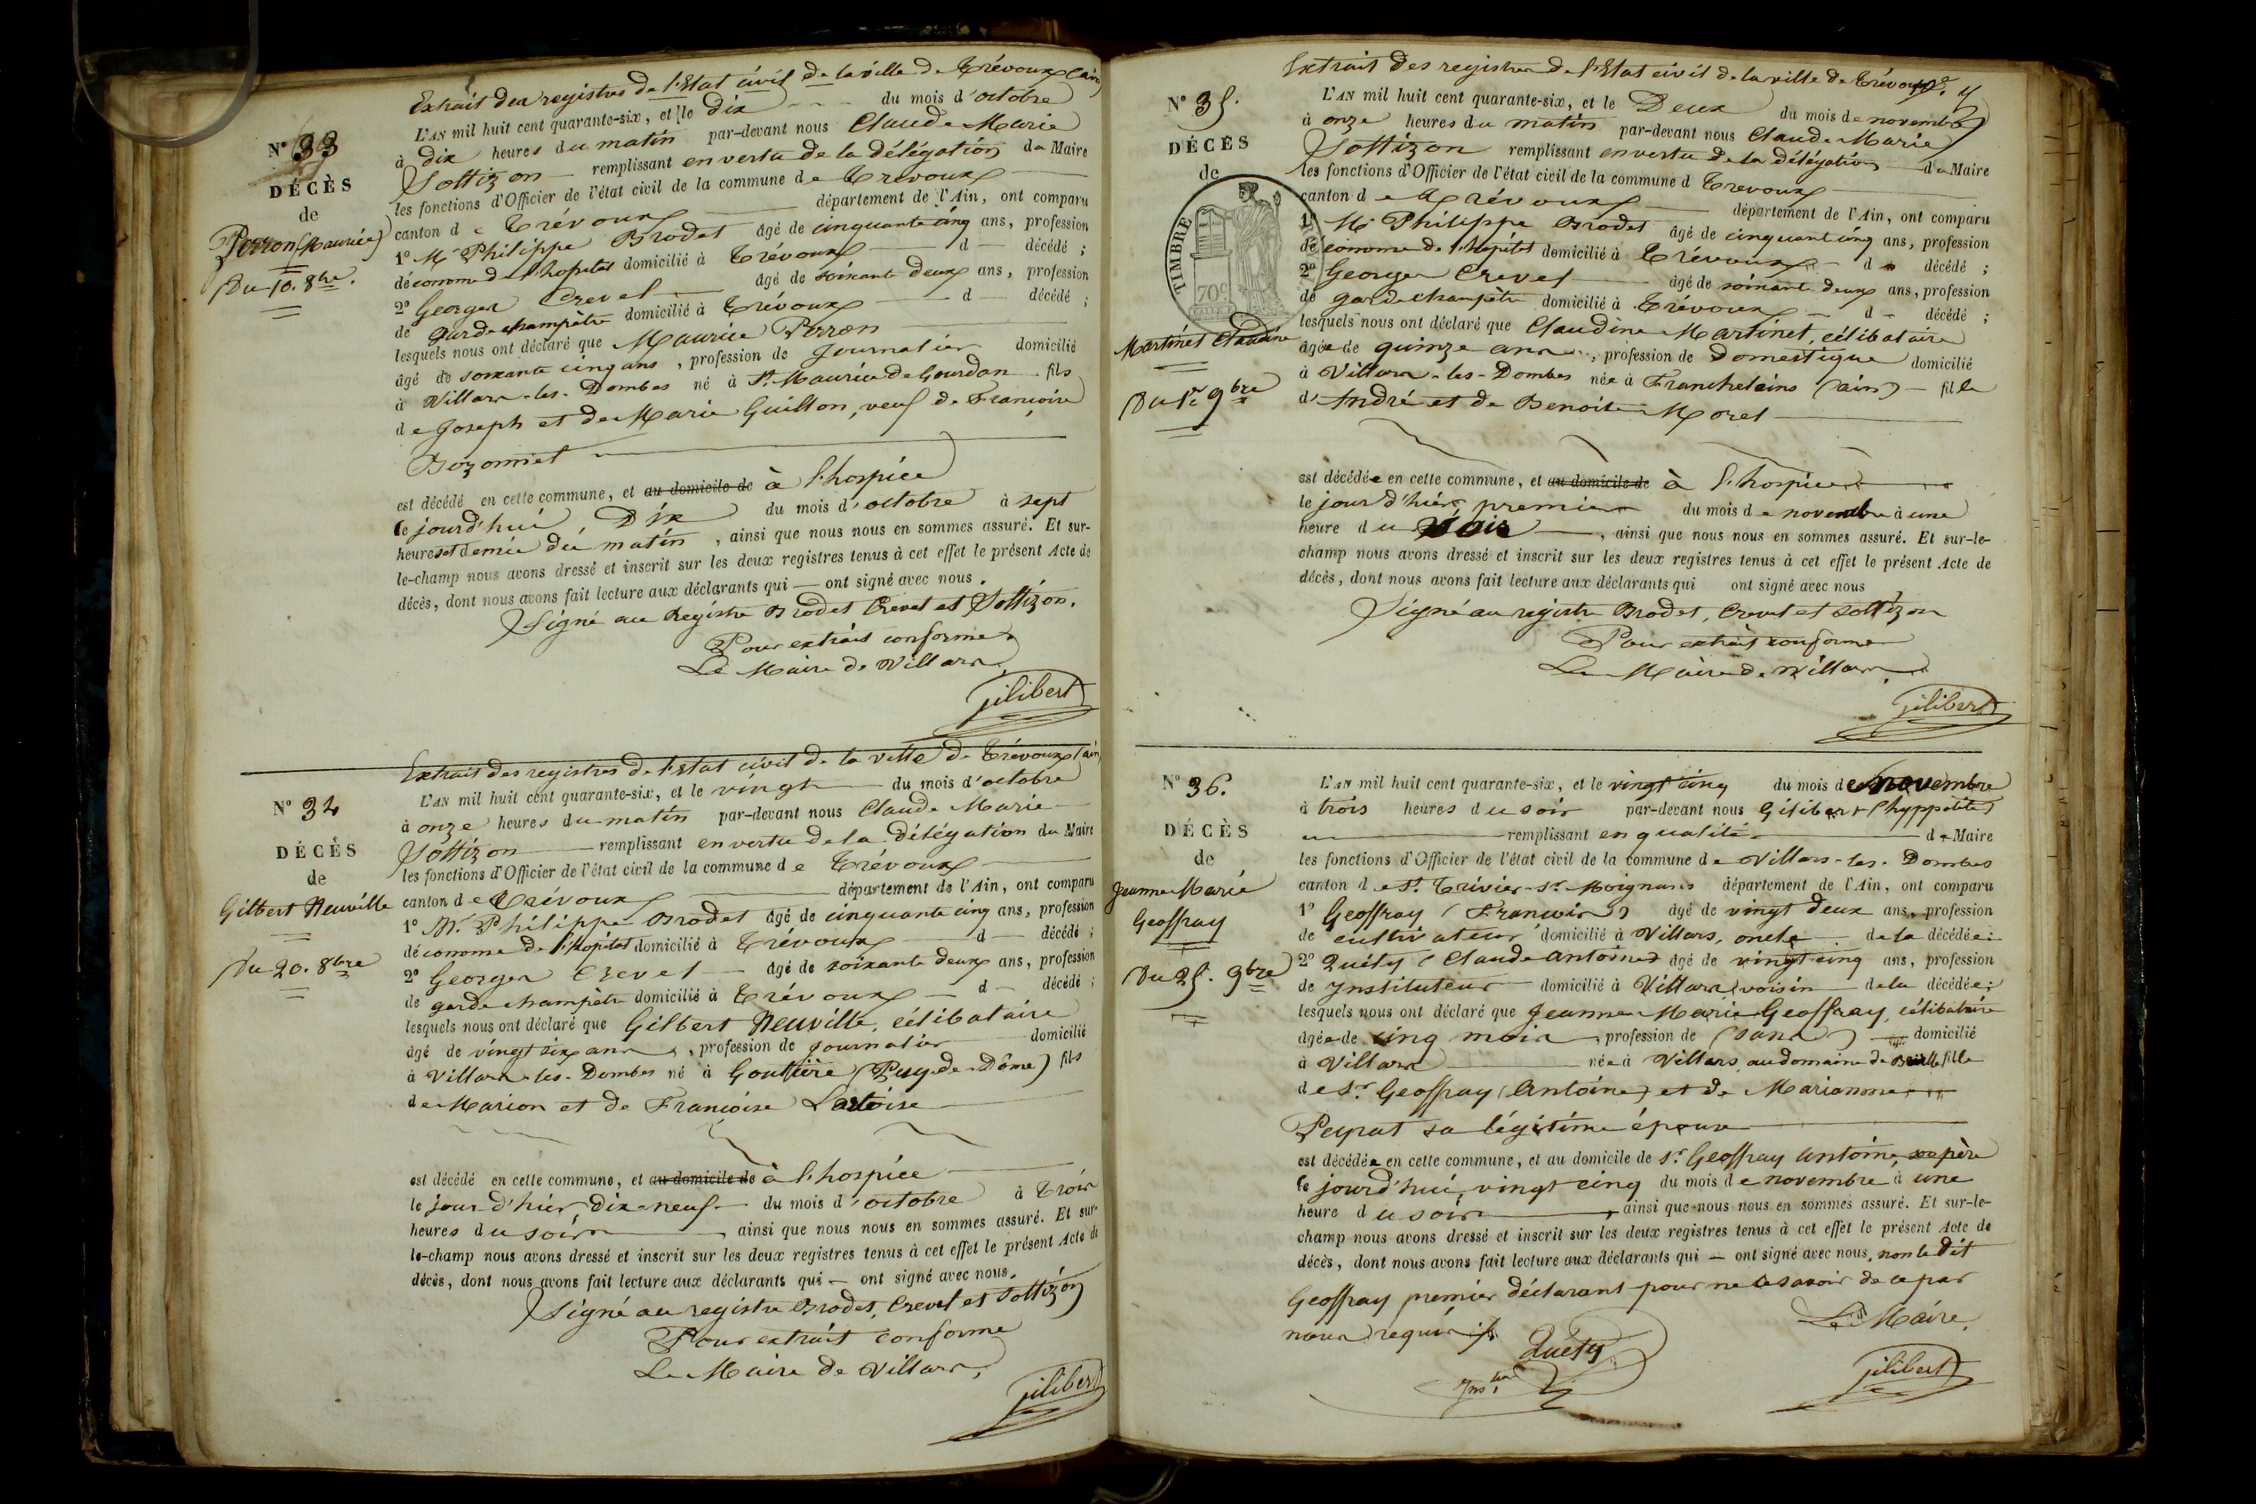 Extrait des registres de l'Etat civil de la ville de Trévoux (ain)
N° 33
DÉCÈS
de
Perron (Maurice)
Du 10. 8bre.
L'AN mil huit cent quarante-six, et le dix du mois d'octobre
à dix heures du matin par-devant nous Claude Marie
Sottizon remplissant en vertu de la délégation du Maire
les fonctions d'Officier de l'état civil de la commune de Trévoux
canton de Trévoux département de l'Ain, ont comparu
1° Mr Philippe Brodet âgé de cinquante cinq ans, profession
d'économe de l'hopital domicilié à Trévoux d décédé ;
2° Georges Crevel âgé de soixante deux ans, profession
de garde champêtre domicilié à Trévoux d décédé ;
lesquels nous ont déclaré que Maurice Perron
âgé de soixante cinq ans, profession de Journalier domicilié
à Villars-les-Dombes né à St. Maurice de Gourdan fils
de Joseph et de Marie Guillon, veuf de Francoise
Bozonnet
est décédé en cette commune, et au domicile de à l'hospice
le jourd'hui, Dix du mois d'octobre à sept
heures et demie du matin, ainsi que nous nous en sommes assuré. Et sur-
le-champ nous avons dressé et inscrit sur les deux registres tenus à cet effet le présent Acte de
décès, dont nous avons fait lecture aux déclarants qui — ont signé avec nous.
Signé au Registre Brodet Crevel et Sottizon.
Pour extrait conforme
Le Maire de Villars
Gilibert
Extrait des registres de l'Etat civil de la ville de Trévoux (ain
N° 34
DÉCÈS
de
Gilbert Neuville
Du 20. 8bre
L'AN mil huit cent quarante-six, et le vingt du mois d'octobre
à onze heures du matin par-devant nous Claude Marie
Sottizon remplissant en vertu de la délégation du Maire
les fonctions d'Officier de l'état civil de la commune de Trévoux
canton de Trévoux département de l'Ain, ont comparu
1° Mr. Philippe Brodet âgé de cinquante cinq ans, profession
d'économe de l'hopital domicilié à Trévoux d décédé ;
2° Georges Crevel âgé de soixante deux ans, profession
de garde champêtre domicilié à Trévoux d décédé ;
lesquels nous ont déclaré que Gilbert Neuville, célibataire
âgé de vingt six ans, profession de Journalier domicilié
à Villars-les-Dombes né à Gouttière (Puy-de-Dôme) fils
de Marion et de Francoise
est décédé en cette commune, et au domicile de à l'hospice
le jour d'hier, Dix-neuf du mois d'octobre à trois
heures du soir ainsi que nous nous en sommes assuré. Et sur-
le-champ nous avons dressé et inscrit sur les deux registres tenus à cet effet le présent Acte de
décès, dont nous avons fait lecture aux déclarants qui — ont signé avec nous.
Signé au registre Brodet, Crevel et Sottizon
Pour extrait conforme
Le Maire de Villars,
Gilibert
Extrait des registres de l'Etat civil de la ville de Trévoux
N° 35.
DÉCÈS
de
TIMBRE
70c
Martinet Claudine
Du 1er 9bre
L'AN mil huit cent quarante-six, et le Deux du mois de novembre
à onze heures du matin par-devant nous Claude Marie
Sottizon remplissant en vertu de la délégation du Maire
les fonctions d'Officier de l'état civil de la commune d Trevoux
canton de Trévoux département de l'Ain, ont comparu
1° Mr Philippe Brodet âgé de cinquant cinq ans, profession
d'économe de l'hopital domicilié à Trévoux d décédé ;
2° Georges Crevel âgé de soixante deux ans, profession
de garde champêtre domicilié à Trévoux d décédé ;
lesquels nous ont déclaré que Claudine Martinet, célibataire
âgée de quinze ans, profession de Domestique domicilié
à Villars-les-Dombes née à Francheleins (ain) fille
d'André et de Benoite Morel
est décédée en cette commune, et au domicile de à l'hospice
le jour d'hier, premier du mois de novembre à une
heure du soir, ainsi que nous nous en sommes assuré. Et sur-le-
champ nous avons dressé et inscrit sur les deux registres tenus à cet effet le présent Acte de
décès, dont nous avons fait lecture aux déclarants qui ont signé avec nous
Signé au registre Brodet, Crevel et Sottizon
Pour extrait conforme
Le Maire de Villars
Gilibert
N° 36.
DÉCÈS
de
Jeanne Marie
Geoffray
Du 25. 9bre
L'AN mil huit cent quarante-six, et le vingt cinq du mois de novembre
à trois heures du soir par-devant nous Gilibert (hyppolite)
remplissant en qualité de Maire
les fonctions d'Officier de l'état civil de la commune de Villars-les-Dombes
canton de St. Trivier-sr-Moignans département de l'Ain, ont comparu
1° Geoffray (Francois) âgé de vingt deux ans, profession
de cultivateur domicilié à Villars, oncle de la décédée ;
2° Quéty (Claude antoine) âgé de vingt-cinq ans, profession
de Instituteur domicilié à Villars, voisin de la décédée ;
lesquels nous ont déclaré que Jeanne Marie Geoffray, célibataire
âgée de cinq mois profession de (sans) domicilié
à Villars née à Villars, au domaine de fille
de Sr. Geoffray (Antoine) et de Marianne
Peyrat sa légitime épouse
est décédée en cette commune, et au domicile de Sr. Geoffray Antoine, son père
le jourd'hui, vingt cinq du mois de novembre à une
heure du soir, ainsi que nous nous en sommes assuré. Et sur-le-
champ nous avons dressé et inscrit sur les deux registres tenus à cet effet le présent Acte de
décès, dont nous avons fait lecture aux déclarants qui — ont signé avec nous, non le dit
Geoffray premier déclarant pour ne le savoir de ce par
nous requis
Le Maire,
Quéty
Gilibert